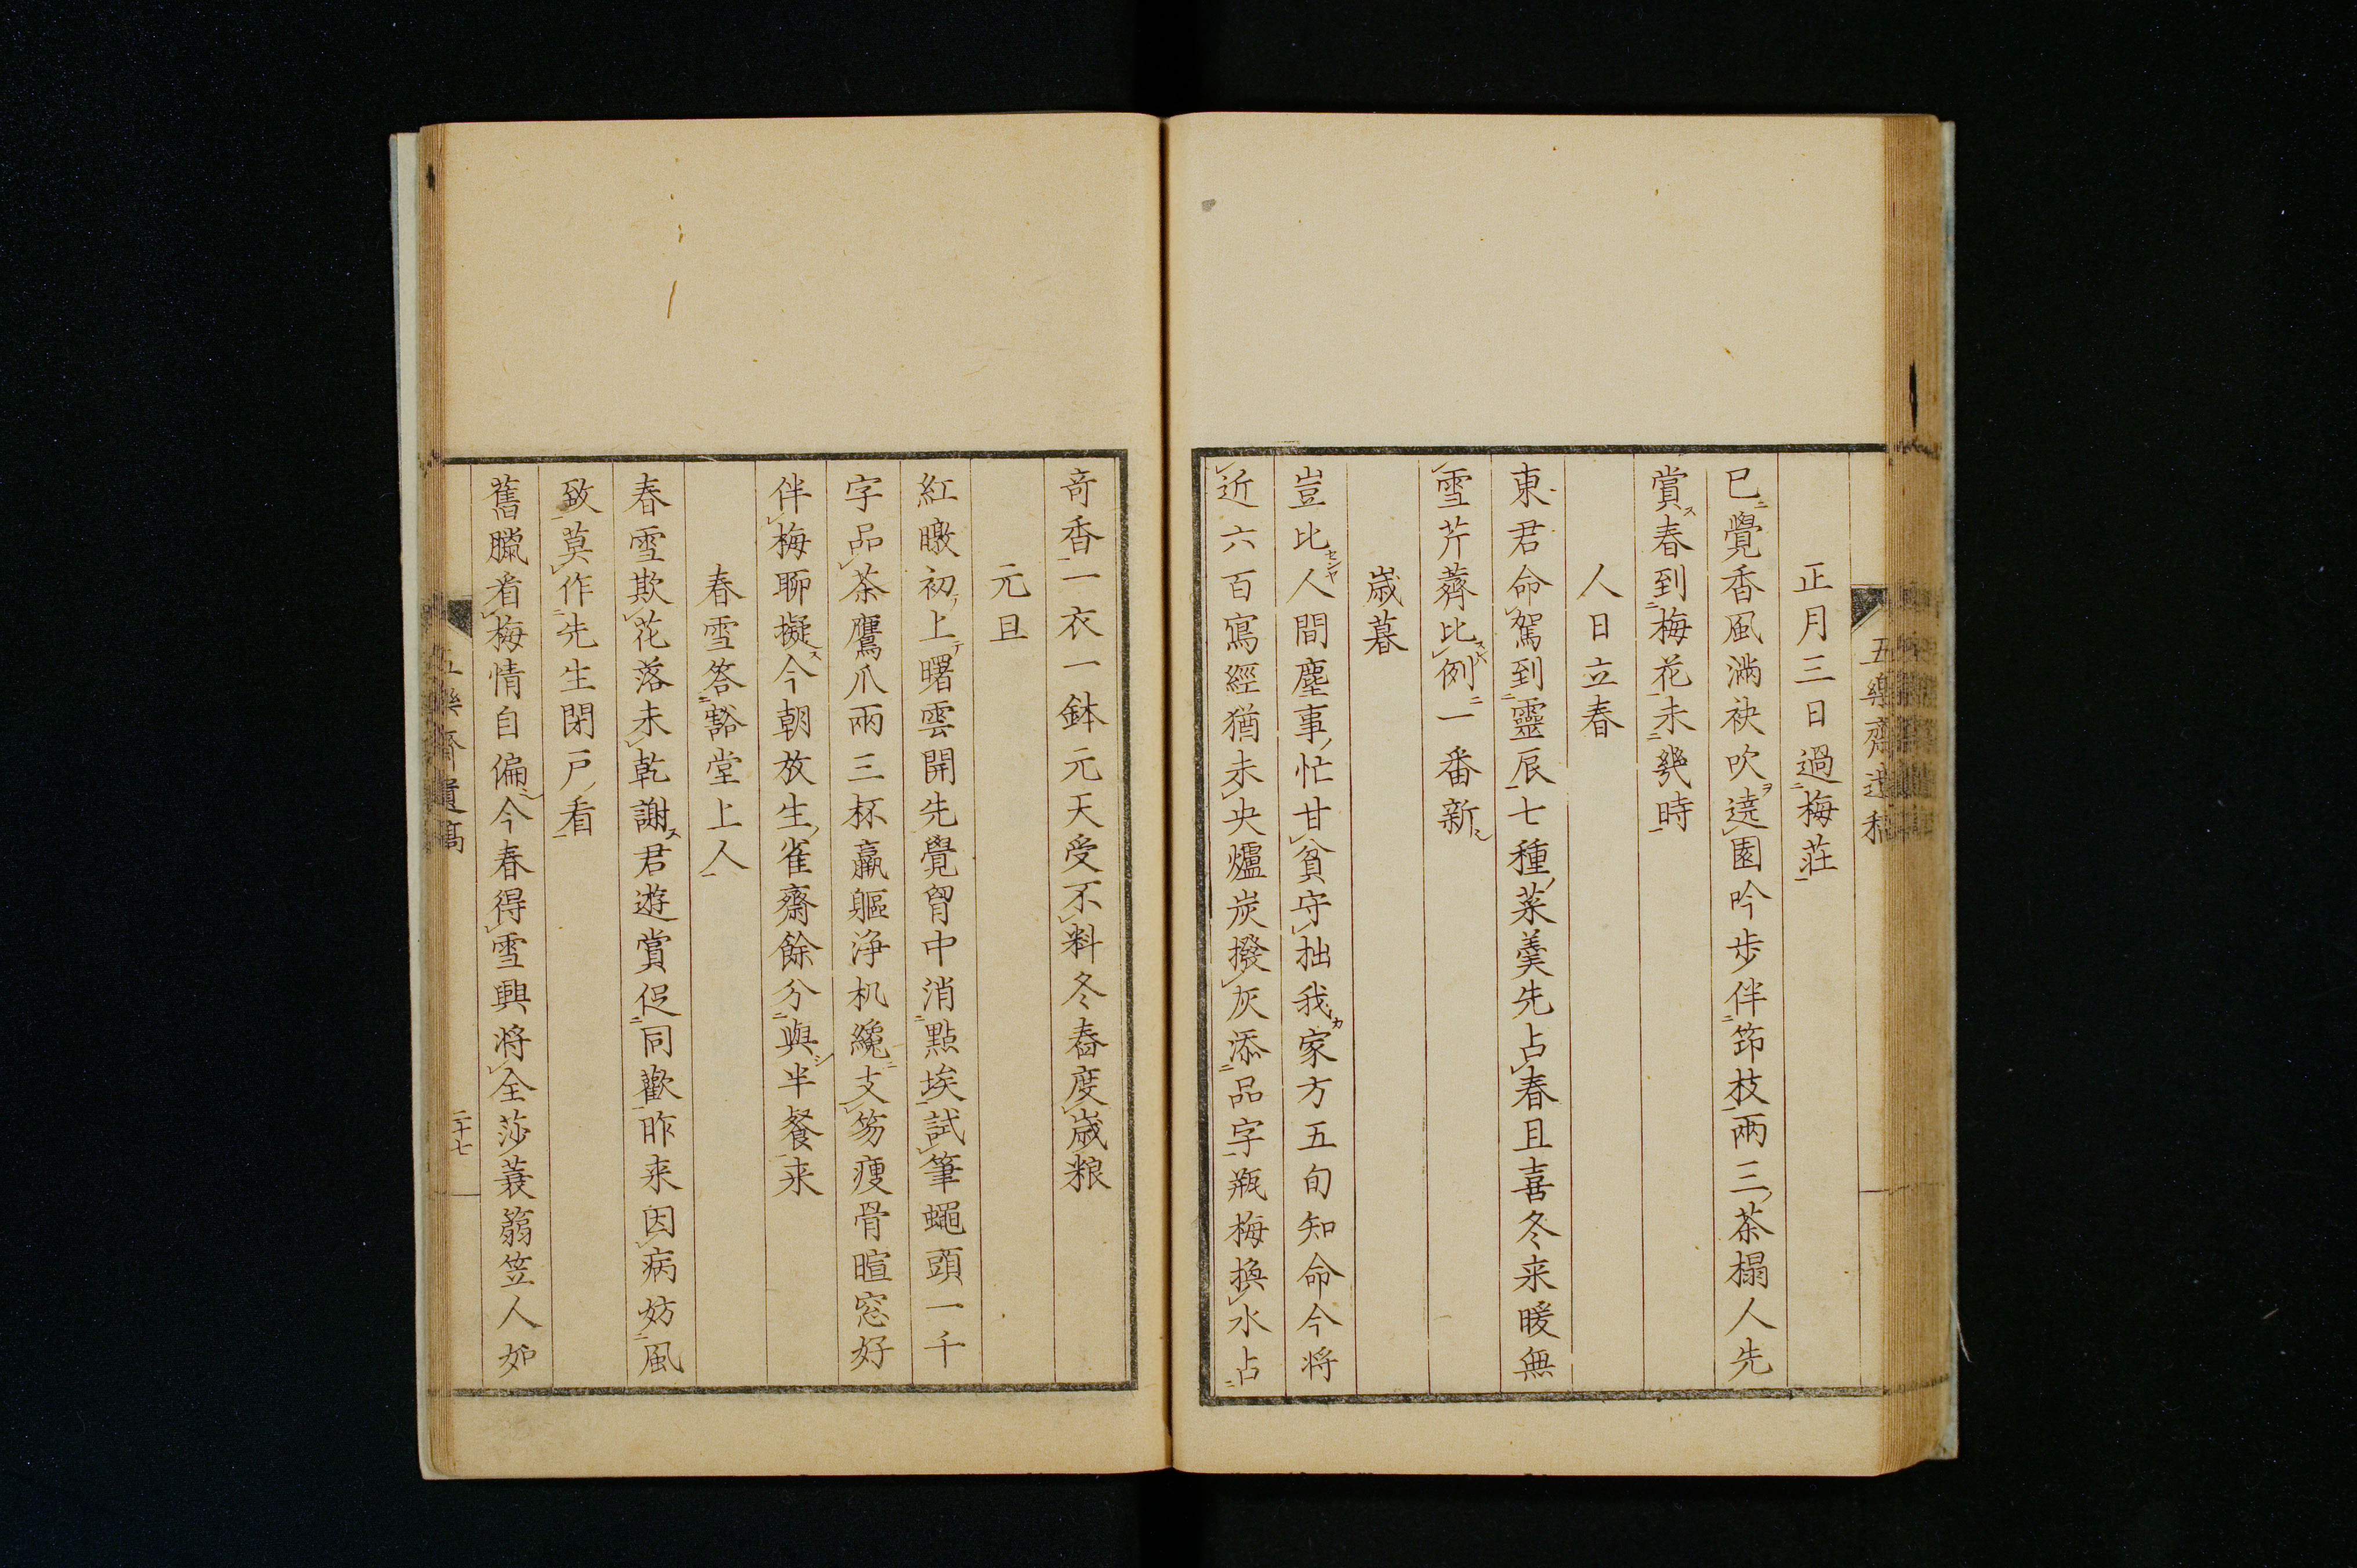 正月三日過梅莊
已覺香風滿袂吹遶園吟步伴筇枝兩三茶榻人先
賞春到梅花未幾時
人日立春
東君命駕到靈辰七種菜羹先占春且喜冬来暖無
雪芹薺比例一番新
歳暮
豈比人間塵事忙甘貧守拙我家方五旬知命今将
近六百寫經猶未央爐炭撥灰添品字瓶梅換水占
奇香一衣一鉢元天受不料冬舂度歳粮
元旦
紅暾初上曙雲開先覺胷中消點埃試筆蠅頭一千
字品茶鷹爪兩三杯羸軀浄机纔支笏痩骨暄窓好
伴梅聊擬今朝放生雀齋餘分與半餐来
春雪答豁堂上人
春雪欺花落未乾謝君遊賞促同歡昨来因病妨風
致莫作先生閉戸看
舊臘看梅情自偏今春得雪興将全莎蓑篛笠人如
五樂齋遺稿
二十七